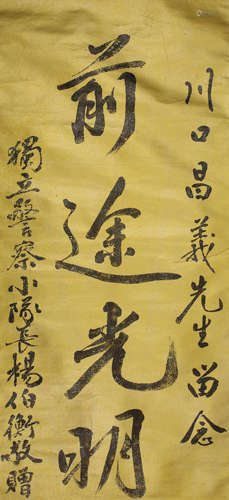 川口昌義先生留念
前途光明
獨立警察小隊長楊伯衡敬贈